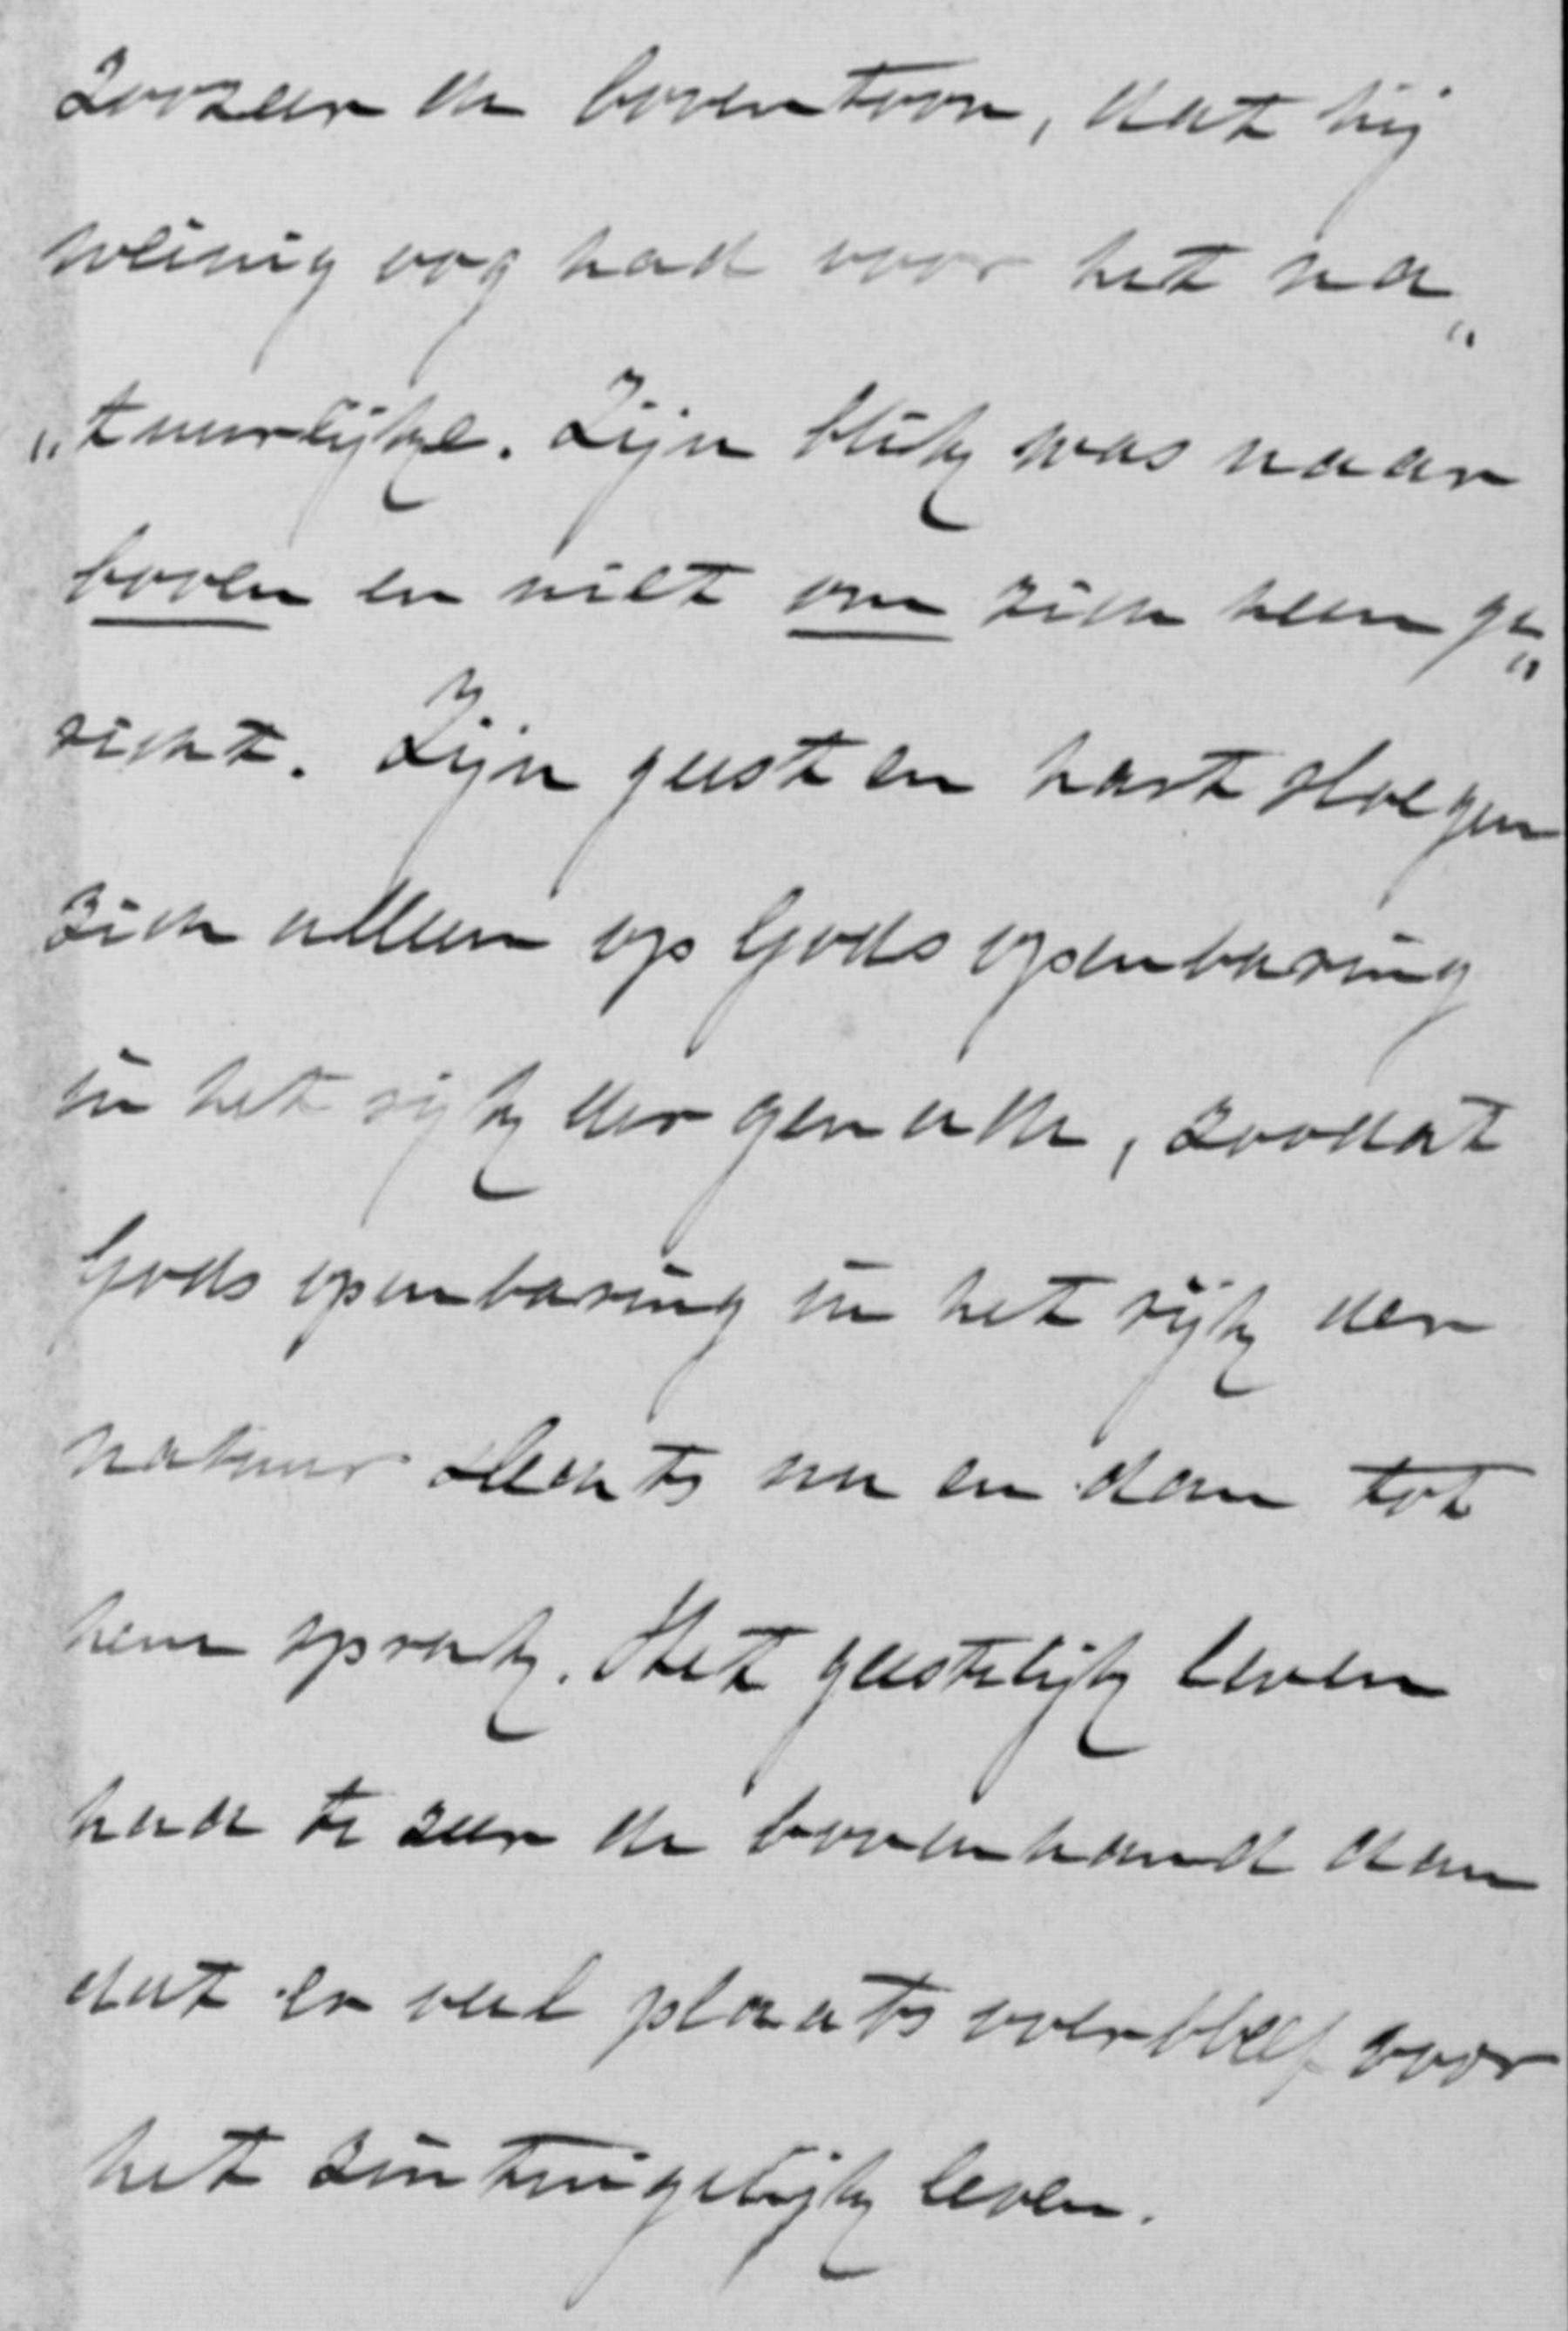 zoozeer de boventoon, dat hij
weinig oog had voor het na„
„tuurlijke. Zijn blik was naar
boven en niet om zich heen ge„
richt. Zijn geest en hart sloegen
zich alleen op Gods openbaring
in het rijk der genade, zoodat
Gods openbaring in het rijk der
natuur slechts nu en dan tot
hem sprak. Het geestelijk leven
had te zeer de bovenhand dan
dat er veel plaats overbleef voor
het zintuigelijk leven.